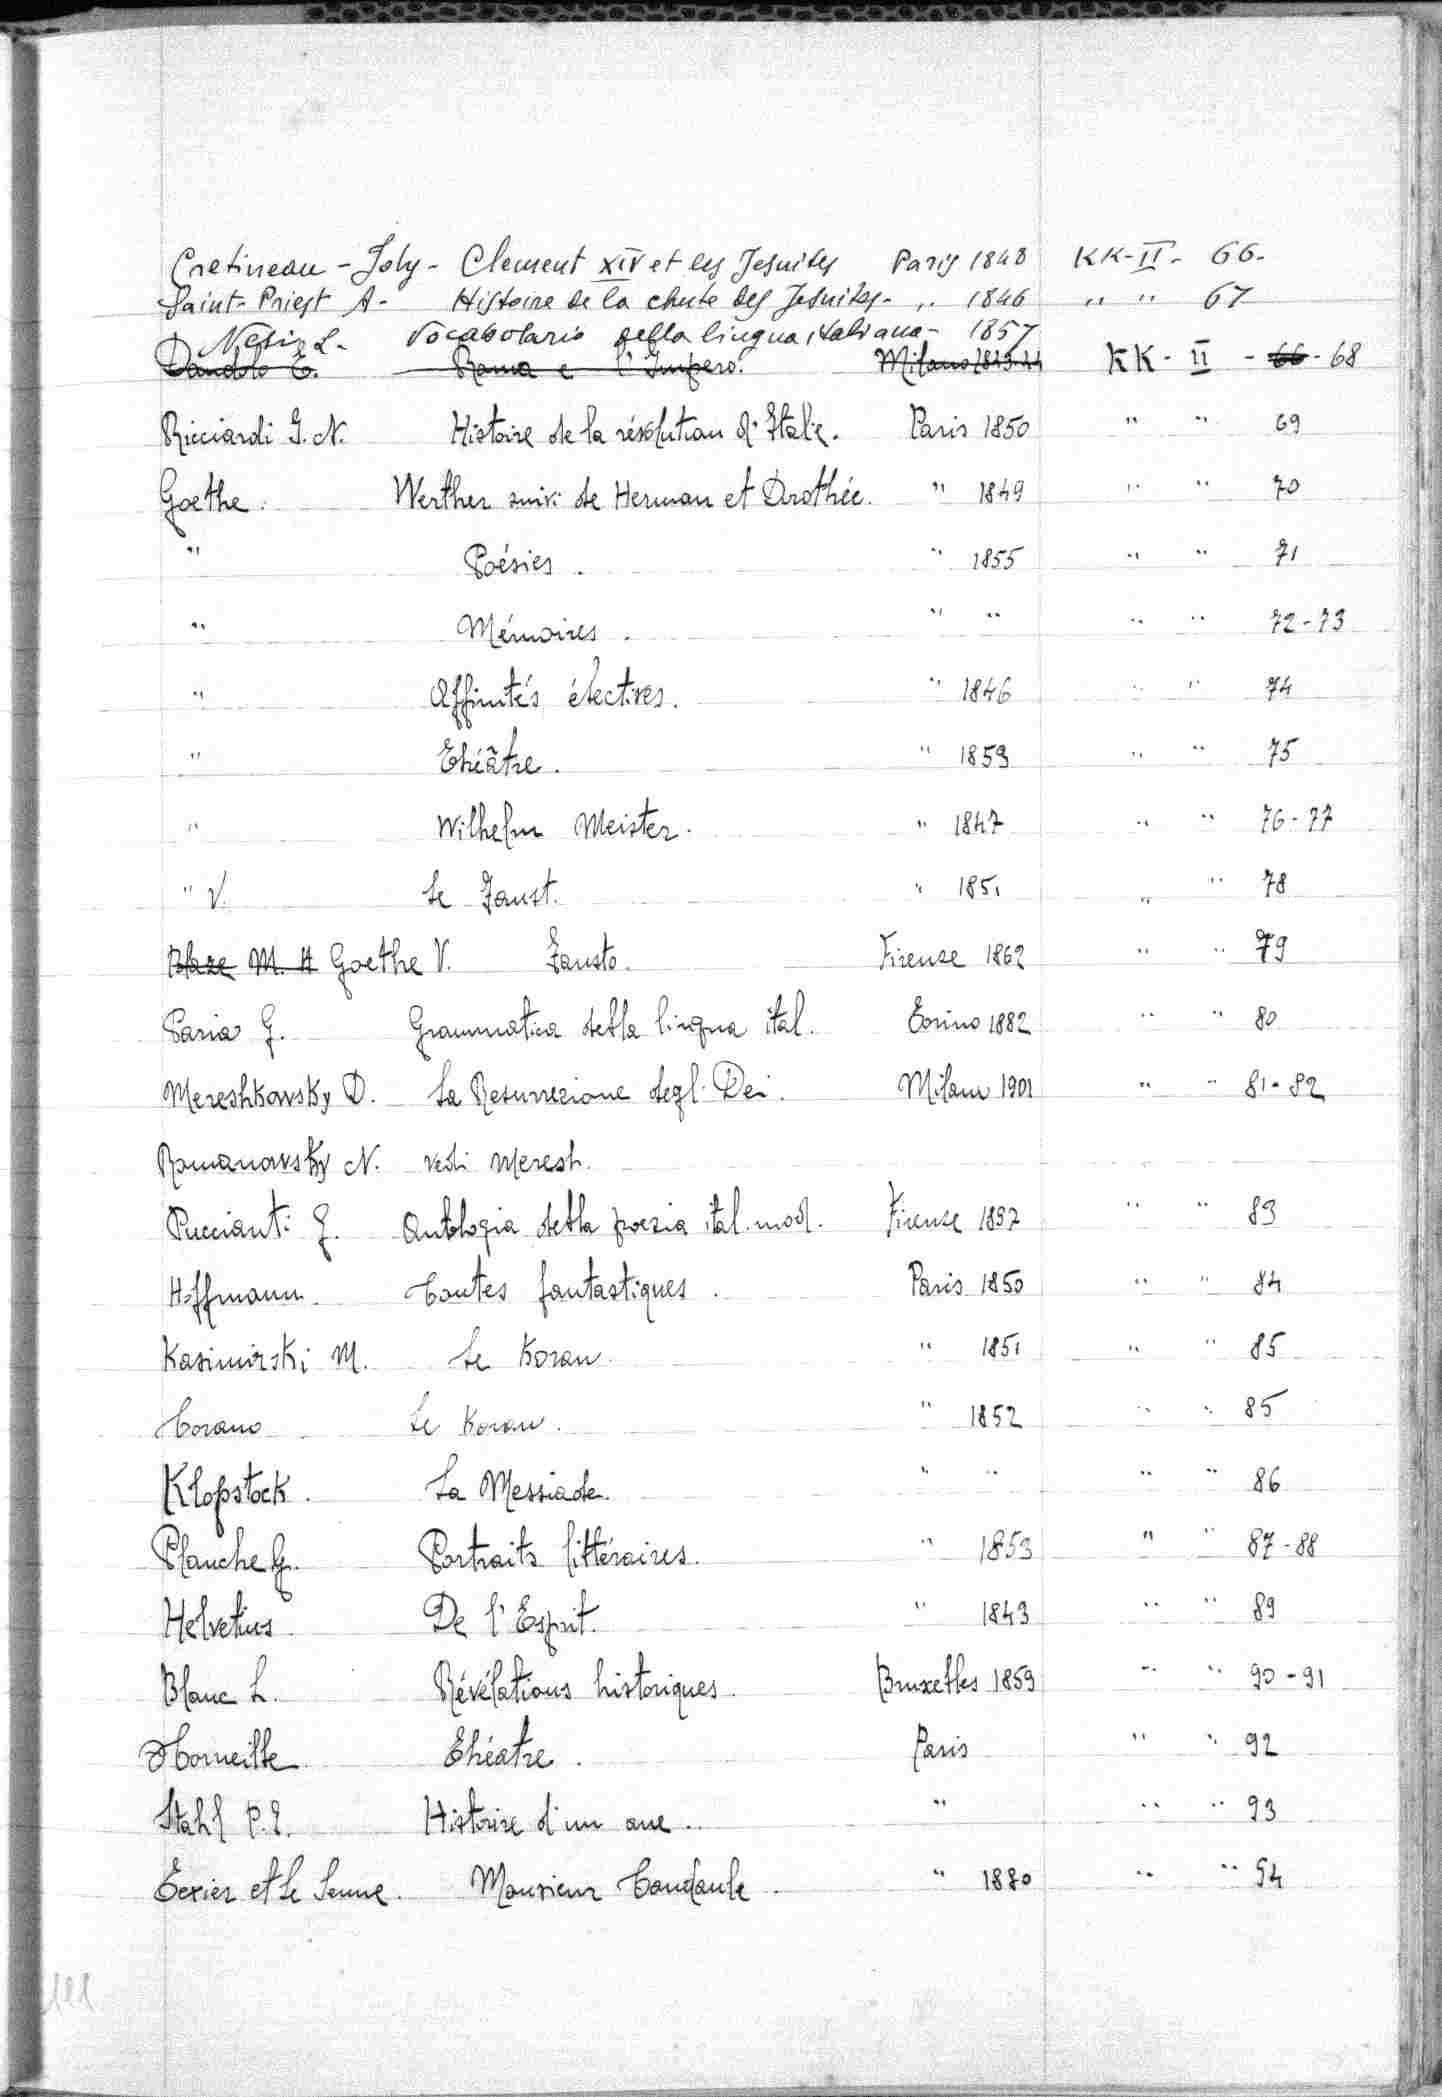 Cretineau - Joly - Clement XIV et les Jesuites Paris 1848 KK-II- 66-
Saint-Priest A- Histoire de la chute des Jesuites- " 1846 " " 67
Nesi L- Vocabolario della lingua italiana- 1857
Dandolo T. Roma e l'Impero. Milano 1843-44 KK - II - 66 - 68
Ricciardi G. N. Histoire de la révolution d'Italie. Paris 1850 " " 69
Goethe. Werther suivi de Herman et Dorothée. " 1849 " " 70
" Poésies. " 1855 " " 71
" Mémoires. " " " " 72-73
" Affinités électives. " 1846 " " 74
" Théâtre. " 1853 " " 75
" Wilhelm Meister. " 1847 " " 76-77
" V. Le Faust. " 1851 " " 78
Blaze M. H Goethe V. Fausto. Firenze 1862 " " 79
Paria G. Grammatica della lingua ital. Torino 1882 " " 80
Mereshkowsky D. La Resurrezione degli Dei. Milano 1901 " " 81-82
Romanowsky N. vedi Meresh.
Puccianti G. Antologia della poesia ital. mod. Firenze 1897 " " 83
Hoffmann. Contes fantastiques. Paris 1850 " " 84
Kasimirski M. Le Koran. " 1851 " " 85
Corano Le Koran. " 1852 " " 85
Klopstock. La Messiade. " " " " 86
Planche G. Portraits littéraires. " 1853 " " 87-88
Helvetius. De l'Esprit. " 1843 " " 89
Blanc L. Révélations historiques. Bruxelles 1859 " " 90-91
Corneille Théatre. Paris " " 92
Stahl P. I. Histoire d'un ane. " " " 93
Texier et Le Senne. Monsieur Candaule. " 1880 " " 94